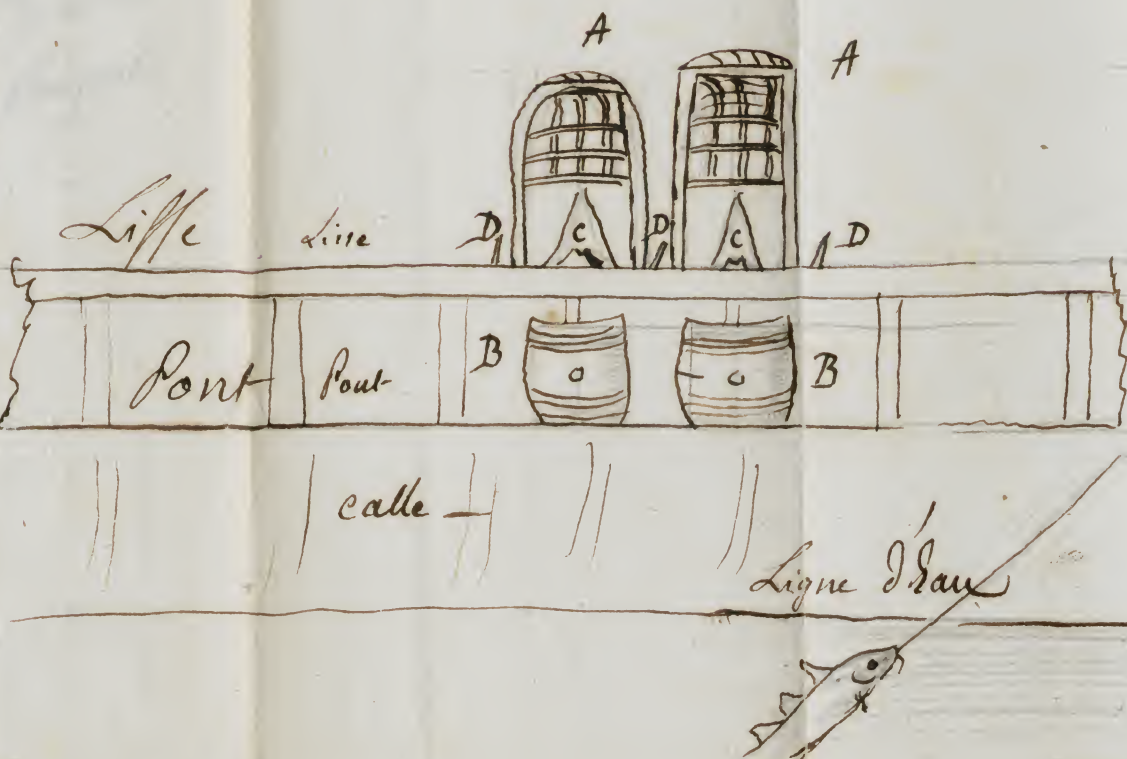 A
A
Lisse Lisse D C D C D
Pont Pont B B
calle
Ligne d'Eau